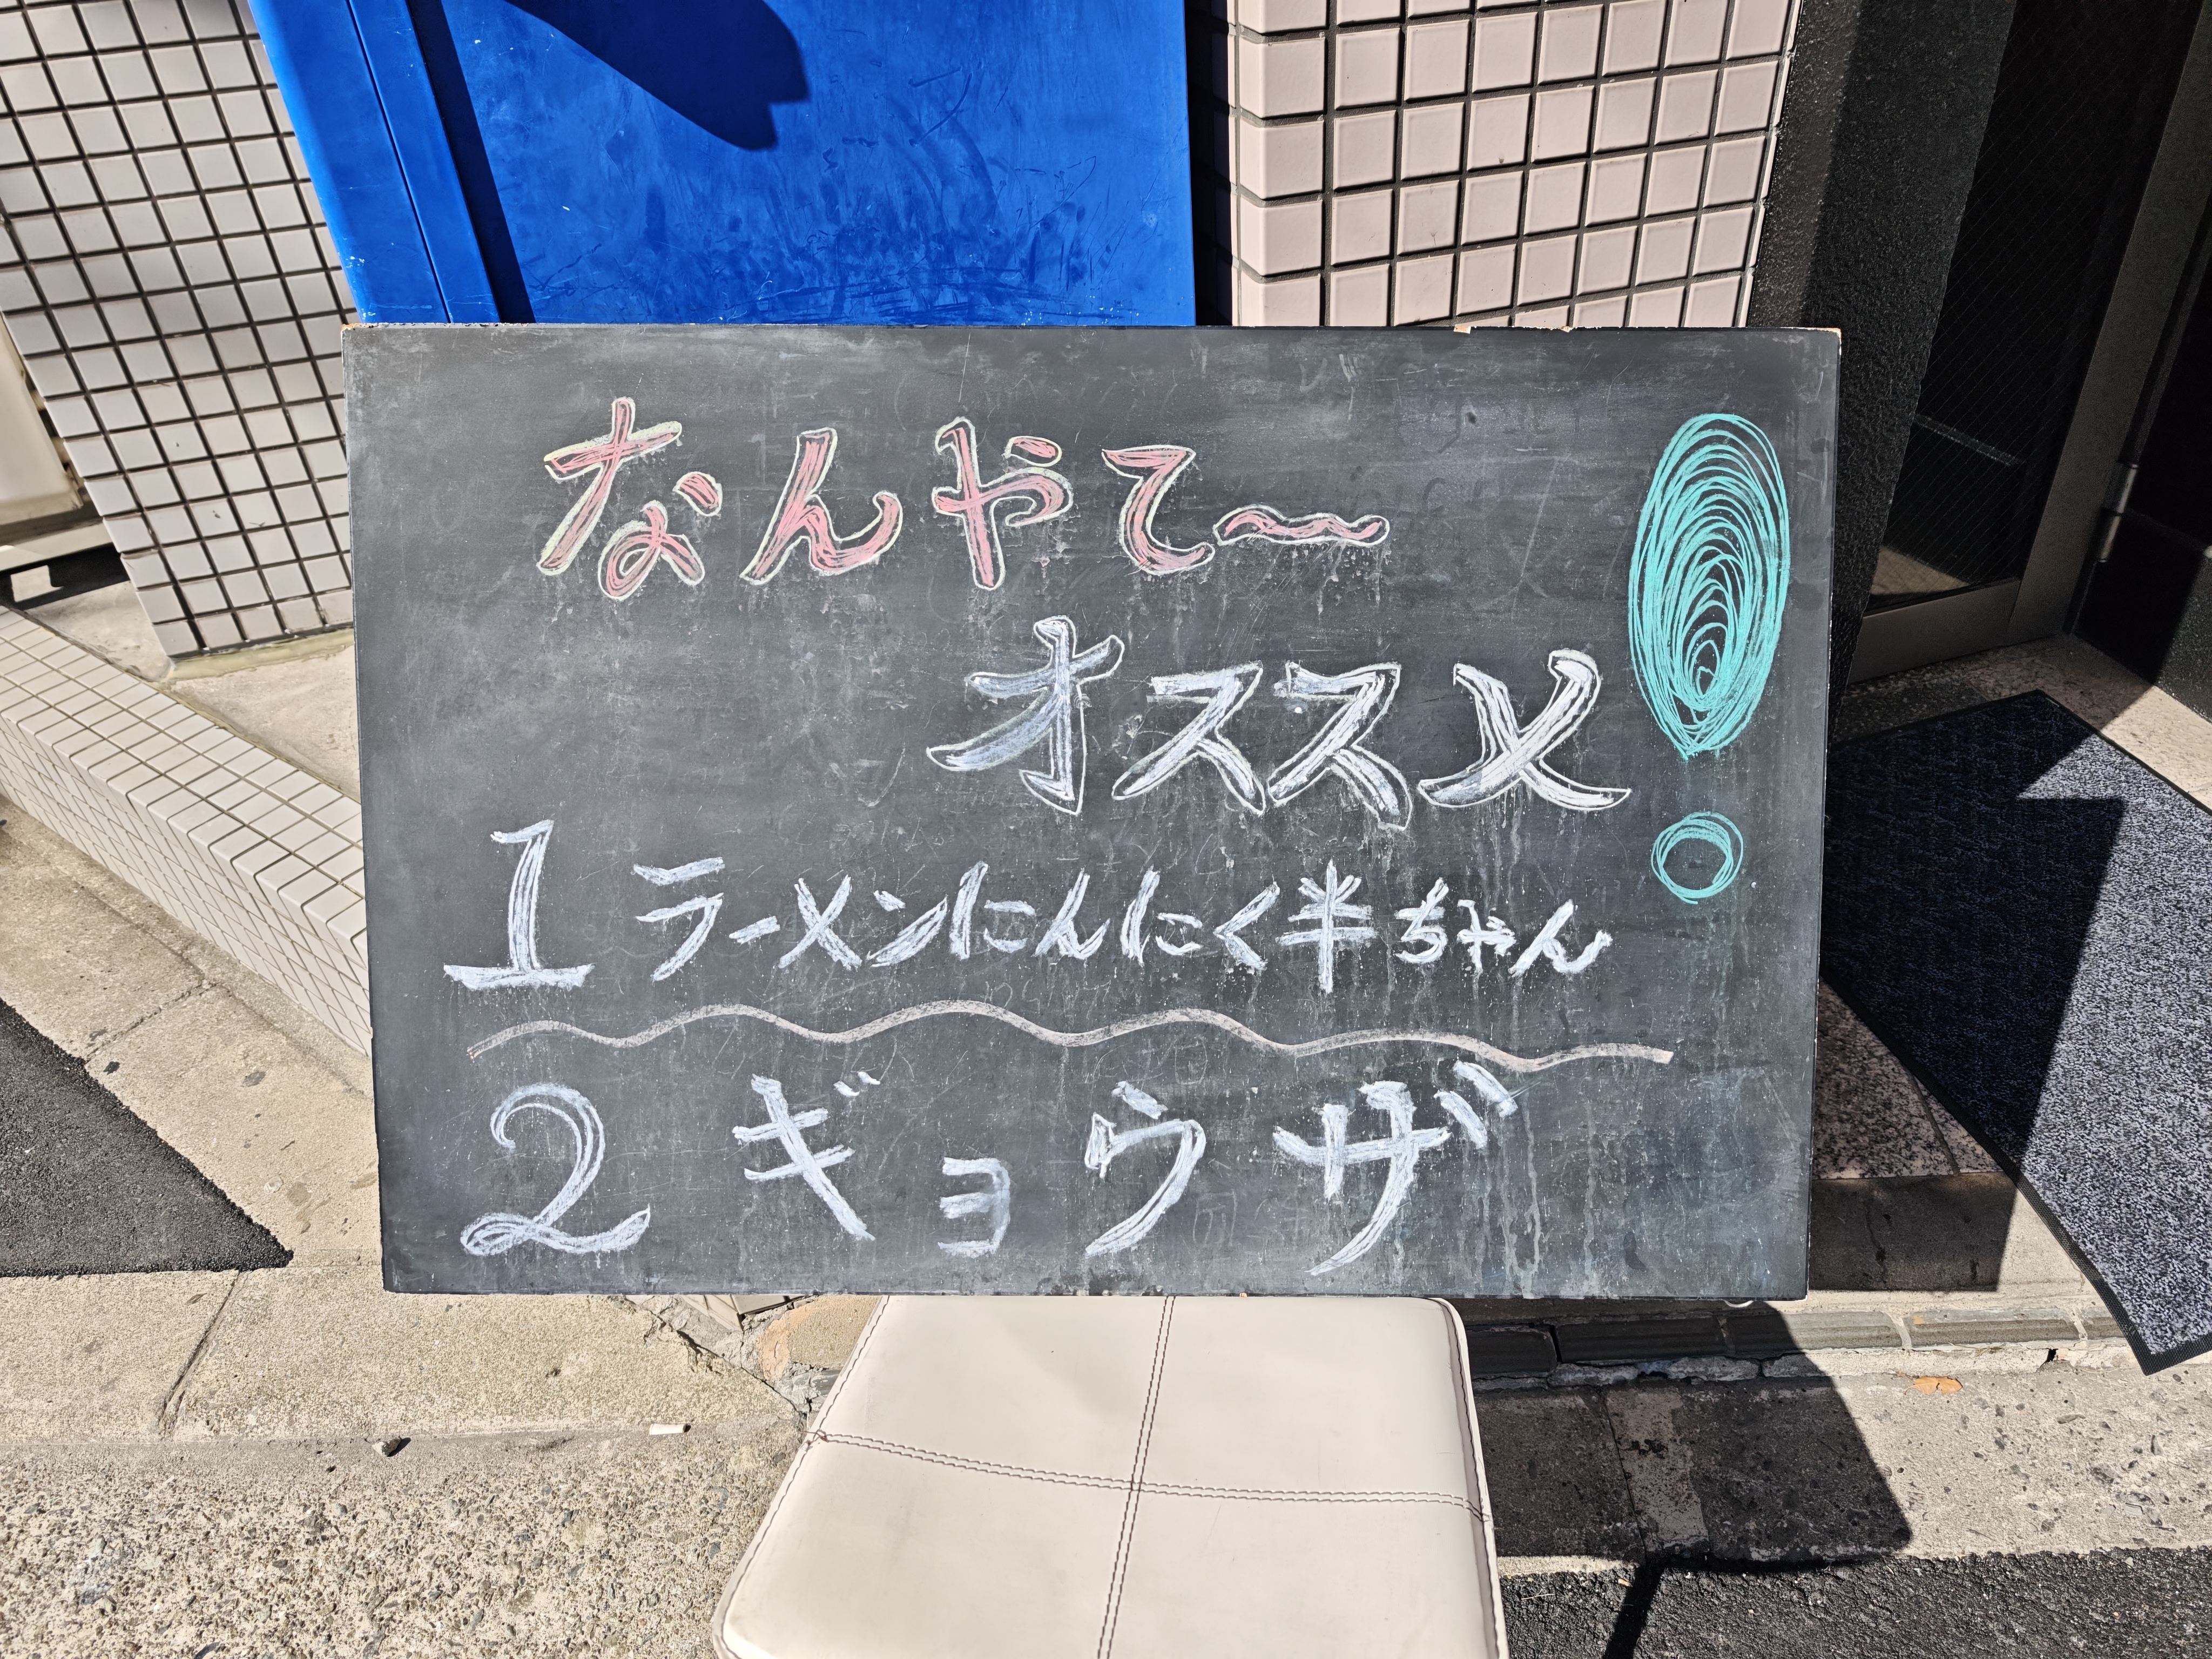 なんやて〜
オススメ!
1 ラーメンにんにく半ちゃん
2 ギョウザ